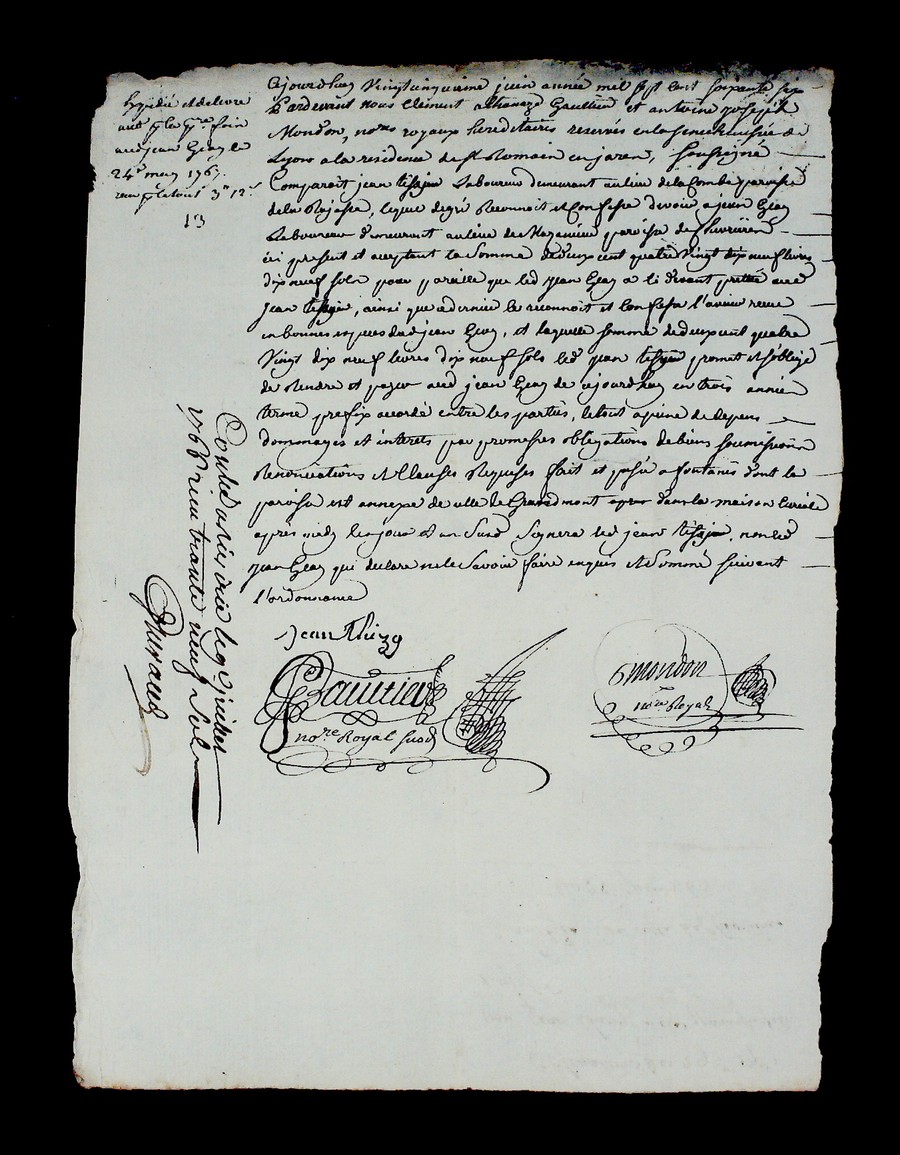 Cejourdhuy vingtcinquieme juin année mil sept cent soixante six
Pardevant nous Clément Gaultier et antoine joseph
Mondon, no.res royaux hereditaires reservés en la senechaussée de
Lyon a la residence de st Romain en jarez, soussigné
Comparoît jean laboureur demeurant au lieu de la Combe paroisse
de la Rajasse, lequel de gré Reconnoit et Confesse devoir a jean Geay
Laboureur demeurant au lieu de paroisse de
ici present et acceptant la Somme de deux cent quatre Vingt dix neuf livres
dix neuf sols pour pareille que led jean Geay a ci devant prettée aud
jean, ainsi que ce dernier le reconnoit et Confesse l'avoir reçue
en bonnes especes dud jean Geay, et laquelle somme de deux cent quatre
Vingt dix neuf livres dix neuf sols led jean promet et s'oblige
de Rendre et payer aud jean Geay de cejourdhuy en trois années
terme prefix accordé entre les parties, le tout a peine de depens
dommages et interets par promesses obligations de biens soumissions
Renonciations et Clauses Requises fait et passé a fontanès dont la
paroisse est annexe de celle de Grandmont dans la maison Curiale
après midy les jour et an Susd Signera led jean, non led
jean Geay qui declare ne le Savoir faire enquis et Sommé suivant
l'ordonnance
Jean
Gaultier
no.re Royal susd
Mondon
no.re Royal
Expédié et delivré
aud jean Geay le
24e may 1767
13
Controlé a le 9 juillet
1766 reçu trente neuf Sols
Durand